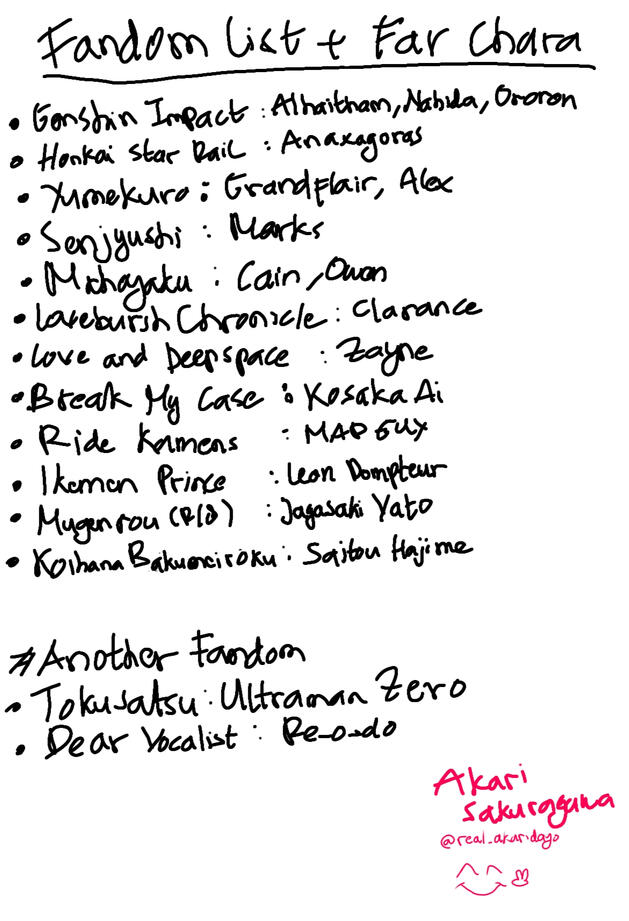 Fandom List + Far Chara
• Genshin Impact : Alhaitham, Nahida, Ororon
• Honkai Star Rail : Anaxagoras
• Yumekuro : Grandflair, Alex
• Senjyushi : Marks
• Mahoyaku : Cain, Owen
• Lovebursh Chronicle : Clarance
• Love and Deepspace : Zayne
• Break My Case : Kosaka Ai
• Ride Kamens : MAD GUY
• Ikemen Prince : Leon Dompteur
• Mugenrou (R18) : Jagasaki Yato
• Koihana Bakumciroku : Saitou Hajime
#Another Fandom
• Tokusatsu : Ultraman Zero
• Dear Vocalist : Re-o-do
Akari
Sakuragawa
@real_akaridayo